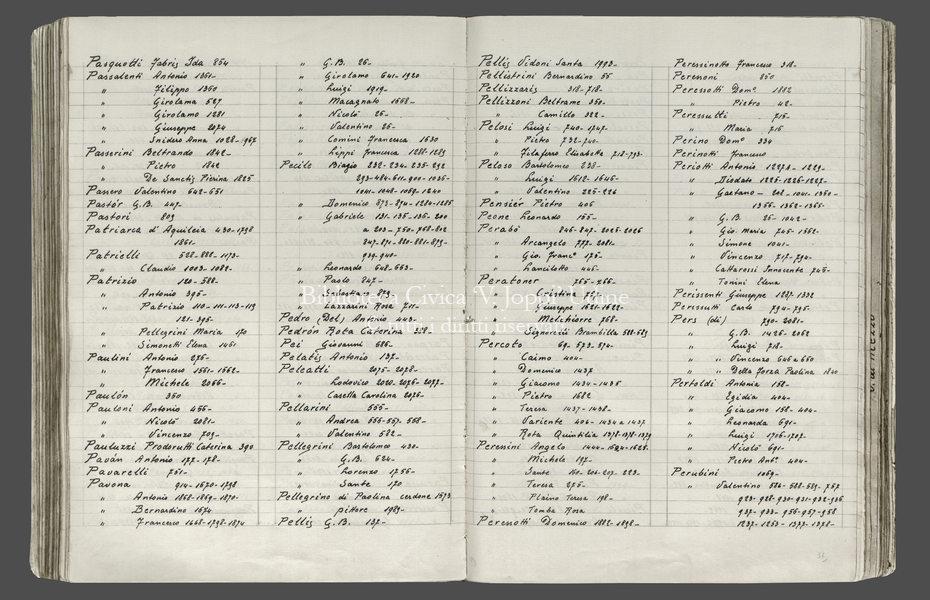 Pasquotti Fabris Ida 854
Passalenti Antonio 1351-
" Filippo 1350
" Girolama 527
" Girolamo 1281
" Giuseppe 2074
" Snidero Anna 1028-1967
Passerini Beltrando 1842-
" Pietro 1842
De Sanctis Pierina 1825
Passero Valentino 642-651
Pastór G.B. 447-
Pastori 809
Patriarca d'Aquileia 430-1798
1861-
Patrielli 528-828-1173-
" Claudio 1003-1082-
Patrizio 120-588-
" Antonio 395-
" Patrizio 110-111-113-119
121-395-
" Pellegrini Maria 170
" Simonetti Elena 1461
Paulini Antonio 275-
" Francesco 1561-1562-
" Michele 2066-
Paulón 350
Pauloni Antonio 455-
" Nicolò 2081-
" Vincenzo 709-
Pauluzzi Prodorutti Caterina 390
Paván Antonio 177-178-
Pavarelli 751-
Pavona 914-1670-1798
" Antonio 1868-1869-1870-
" Bernardino 1674
" Francesco 1668-1798-1874
" G.B. 26-
" Girolamo 641-1920
" Luigi 1919-
" Macagnato 1668-
" Nicolò 26-
" Valentino 26-
" Comini Francesca 1630
" Lippi Francesca 1281-1283
Pecile Biagio 232-234-235-292
293-484-611-900-1035-
1041-1048-1069-1240
" Domenico 873-874-1284-1285
" Gabriele 131-135-136-200
a 203-750-768-812
847-871-880-881-879-
939-940-
" Leonardo 648-663-
" Paolo 847-
" Lazzarini Rosa 711-
Pedro (Del) Antonio 443-
Pedrón Rota Caterina 258-
Pei Giovanni 686-
Pelatis Antonio 137-
Peleatti 2075-2078-
" Lodovico 2020-2076-2077-
" Caselta Carolina 2076-
Pellarini 555-
" Andrea 556-557-558-
" Valentino 582-
Pellegrini Bartolomeo 430-
" G.B. 624-
" Lorenzo 1756-
" Sante 170
Pellegrino di Paolina cerdone 1593
" pittore 1989-
Pellis G.B. 137-
Pellis Vidoni Santa 1993-
Pellistrini Bernardino 55
Pellizzaris 318-718-
Pellizzoni Beltrame 350-
" Camillo 322-
Pelosi Luigi 740-1747-
" Pietro 732-740-
" Filaferro Elisabetta 718-793-
Peloso Bartolomeo 238-
" Luigi 1612-1646-
" Valentino 225-226
Pensiér Pietro 406
Peone Leonardo 155-
Perabò 846-847-2025-2026
" Arcangelo 777-2081-
" Gio. Franc° 175-
" Lancilotto 445-
Peratoner 765-766-
" Cristina 791-
" Giuseppe 1621-1622-
" Melchiorre 768-
" Signorelli Brambilla 588-589
Percoto 69-573-574-
" Caimo 404-
" Domenico 1437
" Giacomo 1434-1435
" Pietro 1682
" Teresa 1437-1438-
" Variente 404-1434 a 1437
" Rota Quintilia 1378-1378-1379
Peressini Angelo 1444-1624-1625-
" Michele 197-
" Sante 160-206-207-223-
" Teresa 275-
" Plaino Teresa 198-
" Tomba Rosa
Peressotti Domenico 1882-1898-
Peressinotto Francesco 318-
Peressoni 850
Peressotti Dom° 1882
" Pietro 42-
Peressutti 715-
" Maria 715
Perino Dom° 334
Perinotti Francesco
Periotti Antonio 1227a-1229-
" Diodato 1225-1226-1227-
" Gaetano- 208-1041-1350-
1355-1362-1365-
" G.B. 25-1042-
" Gio. Maria 745-1562-
" Simone 1041-
" Vincenzo 717-794-
" Cattarossi Innocente 745-
" Tonini Elena
Perissenti Giuseppe 1237-1338
Perissutti Carlo 794-795-
Pers (di) 790-2081-
" G.B. 1425-2062
" Luigi 718-
" " Vincenzo 646 a 660
" " Della Forza Paolina 1840
Pertoldi Antonia 158-
" Egidia 404-
" Giacomo 158-404-
" Leonarda 691-
" Luigi 1706-1707-
" Nicolò 691-
" Pietro Ant° 404-
Perubini 1069-
" Valentino 586-588-589-767
923-928-930-931-932-936
937-938-956-957-958
1237-1253-1377-1378-
Biblioteca Civica "V. Joppi", Udine